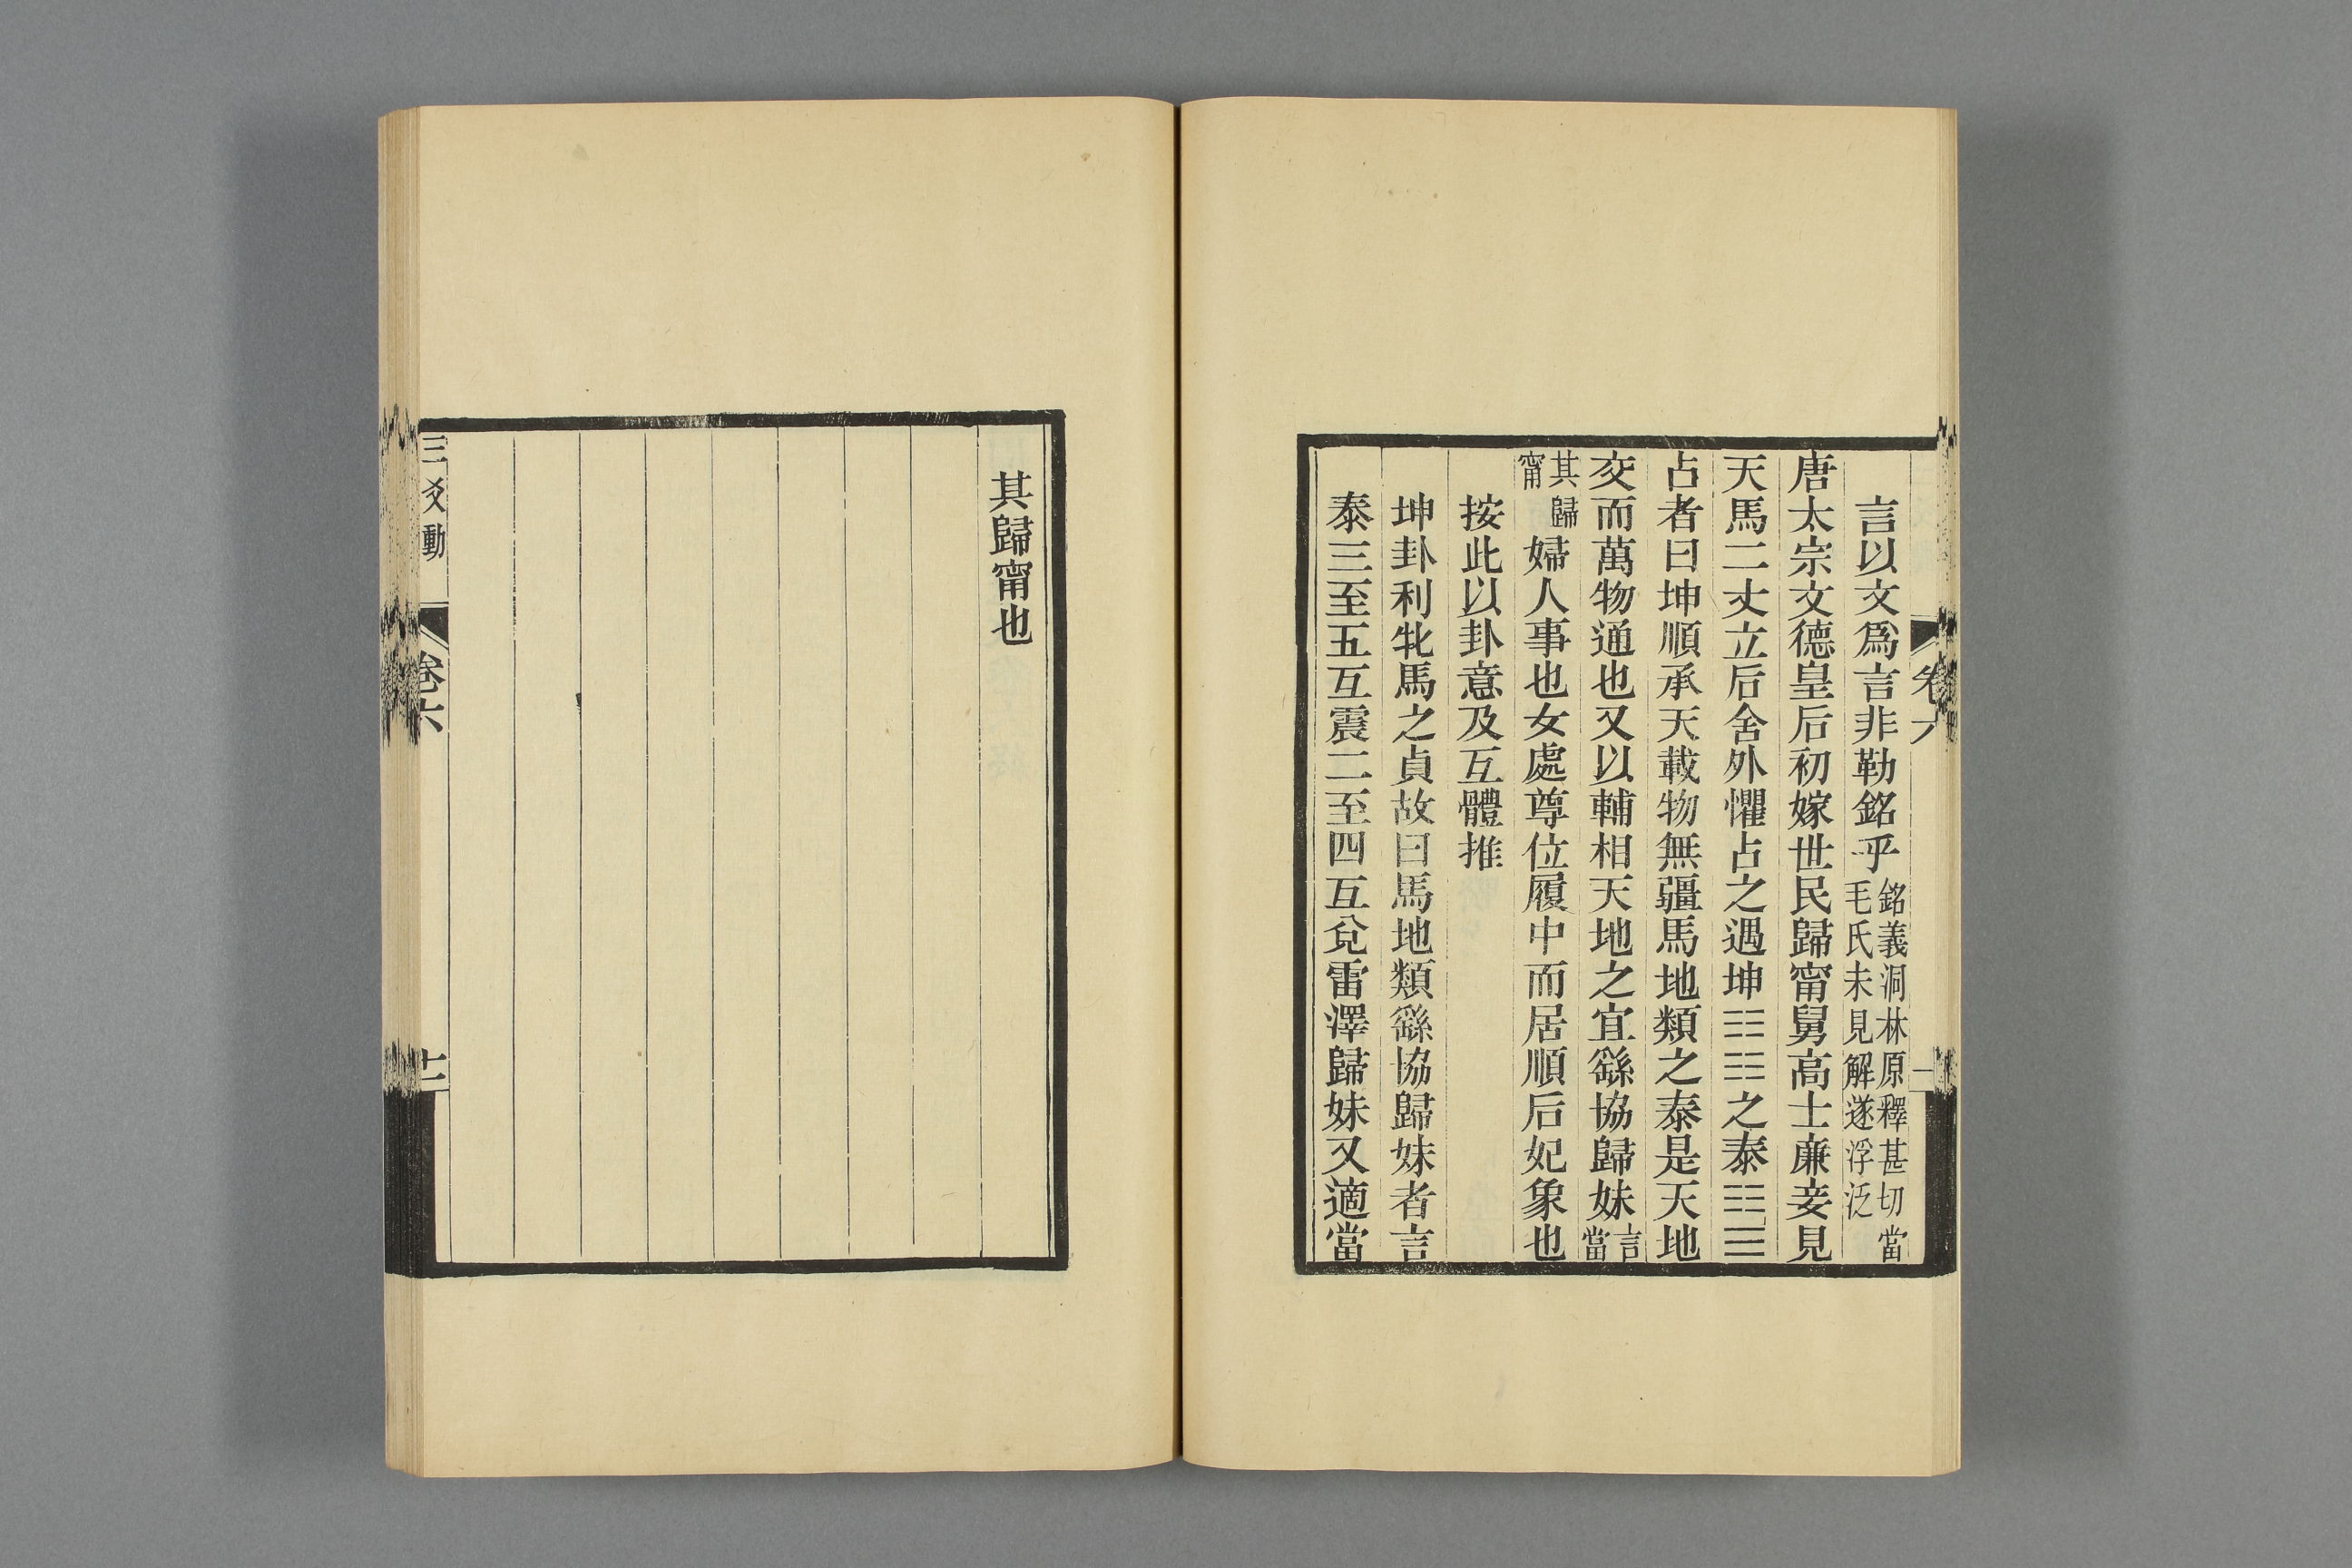 言以文爲言非勒銘乎銘義洞林原釋甚切當毛氏未見解遂浮泛
唐太宗文德皇后初嫁世民歸甯舅高士廉妾見
天馬二丈立后舍外懼占之遇坤☷☷之泰☷☰
占者曰坤順承天載物無疆馬地類之泰是天地
交而萬物通也又以輔相天地之宜繇協歸妹言當
其歸甯婦人事也女處尊位履中而居順后妃象也
按此以卦意及互體推
坤卦利牝馬之貞故曰馬地類繇協歸妹者言
泰三至五互震二至四互兌雷澤歸妹又適當
其歸甯也
三爻動
卷六
十一
卷六